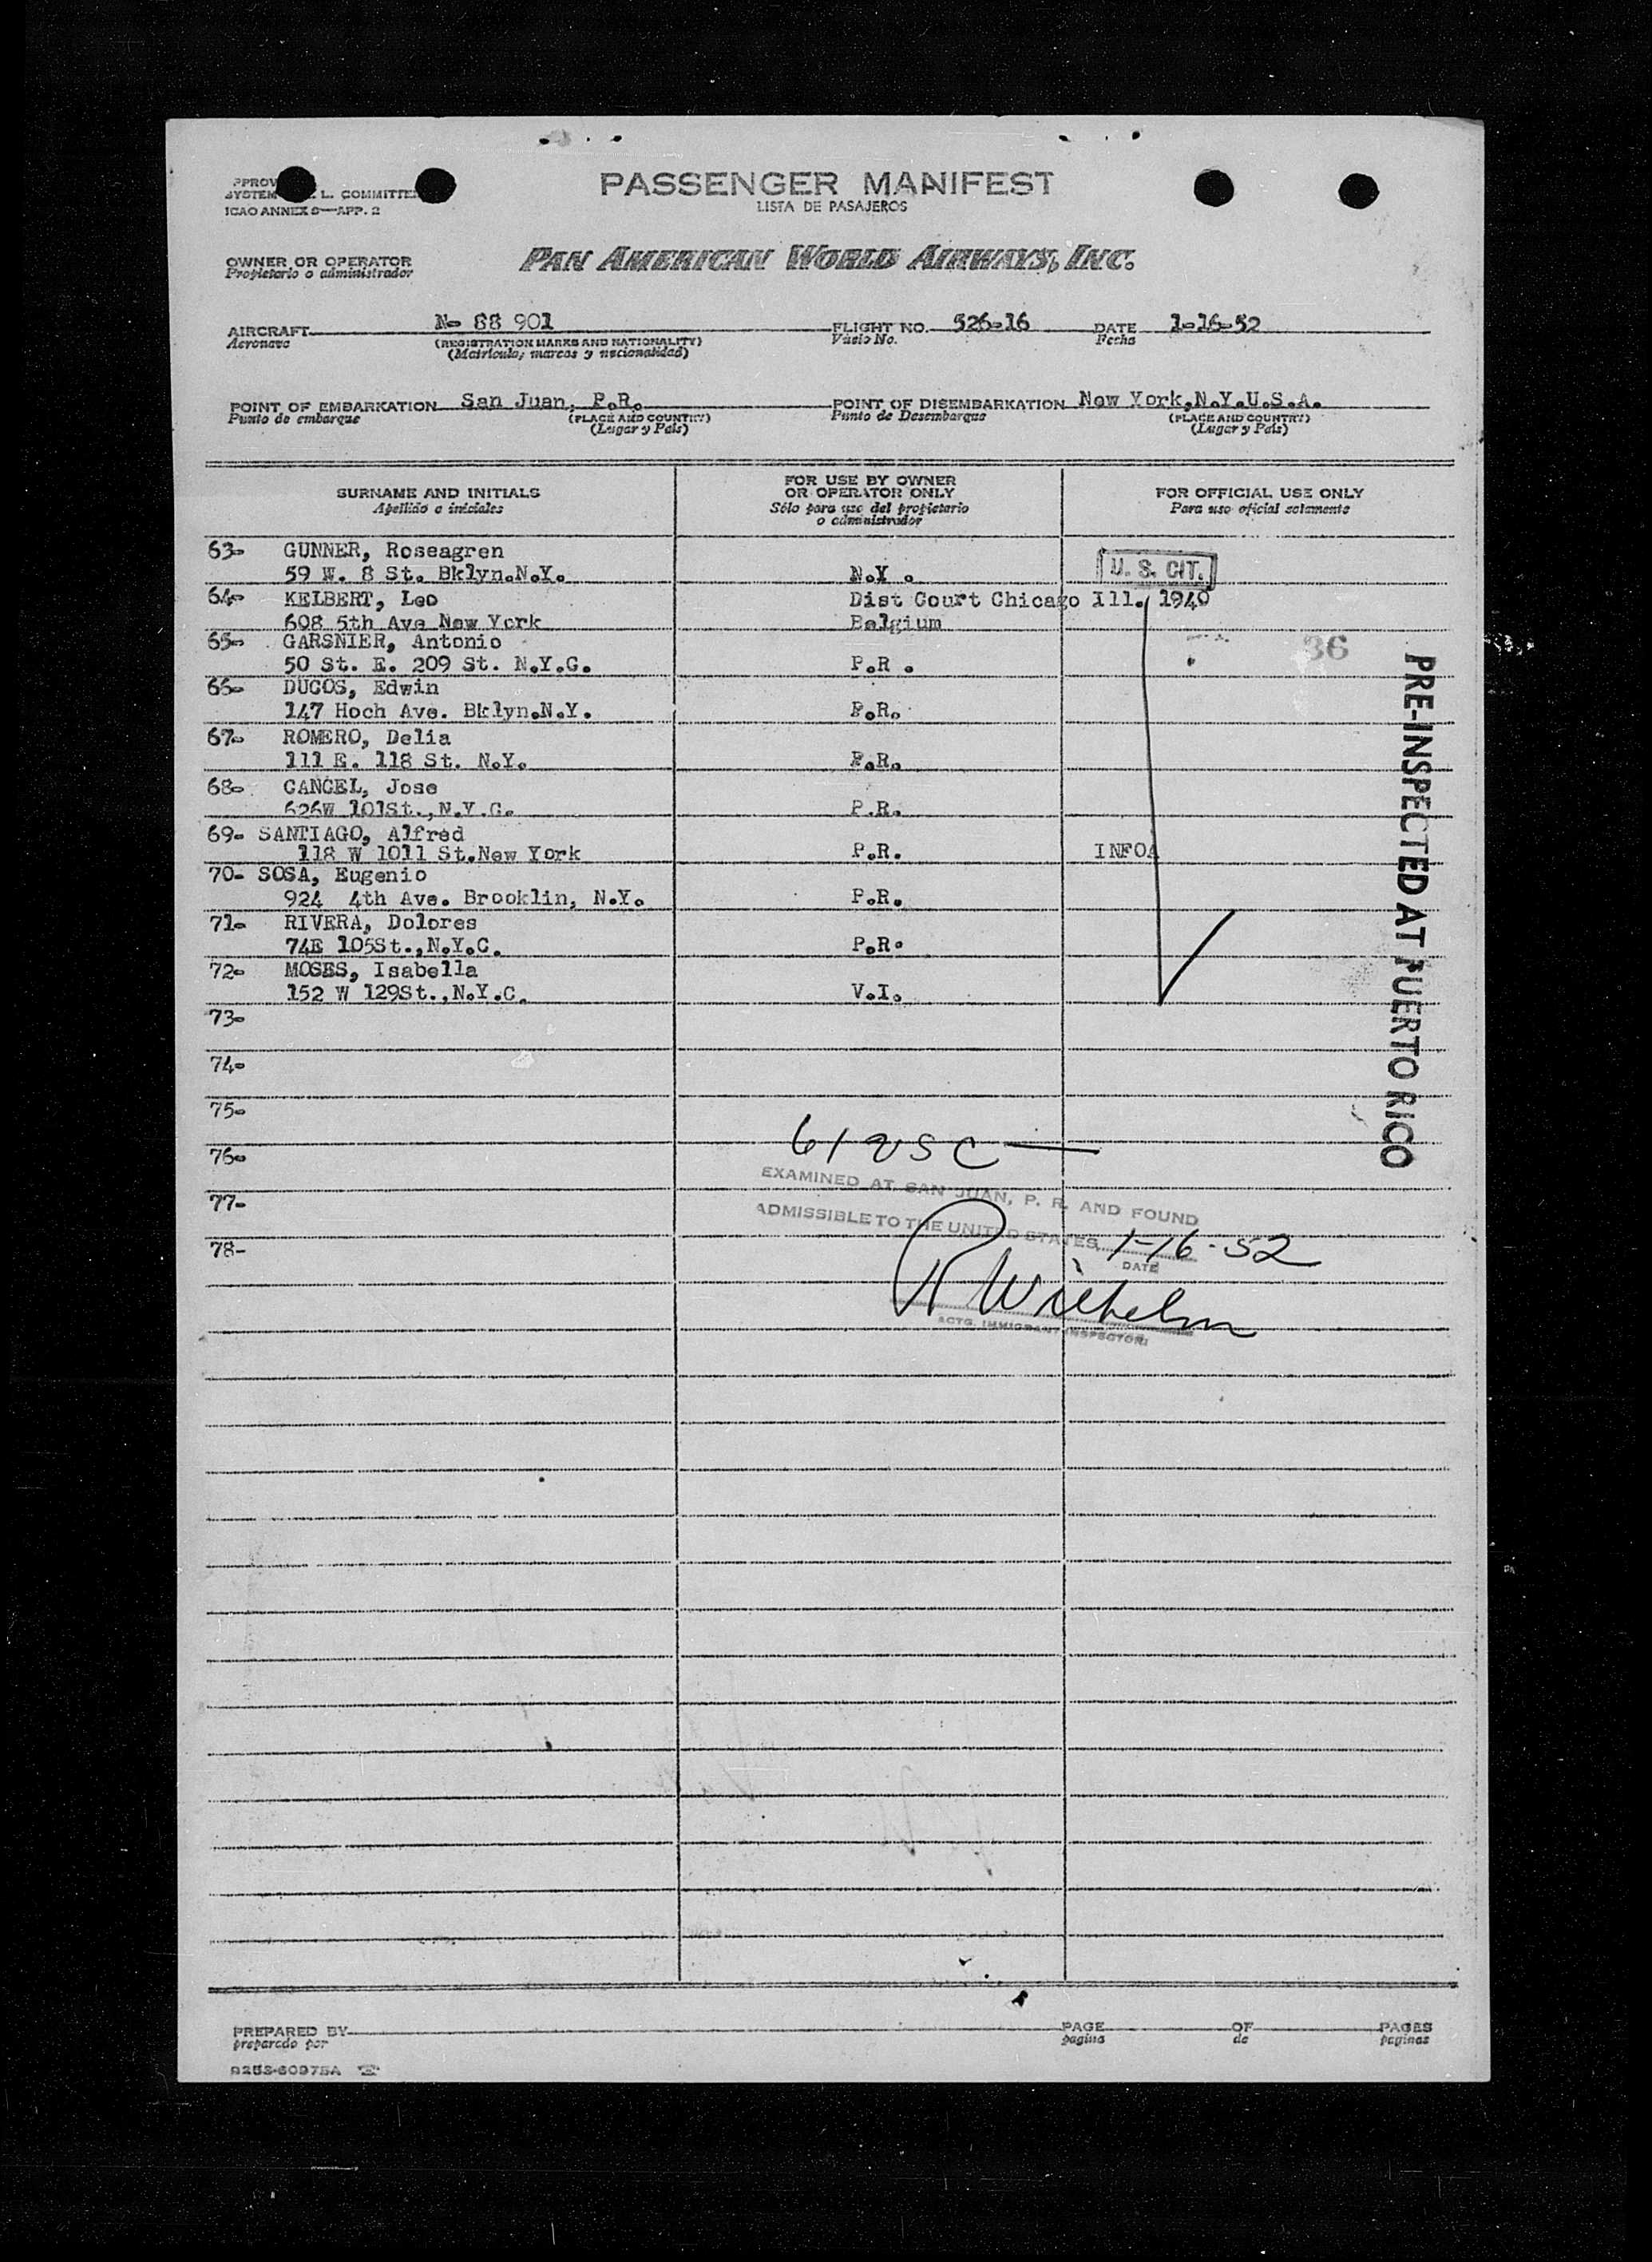 SYSTEM L. COMMITTE
ICAO ANNEX 9—APP. 2
PASSENGER MANIFEST
LISTA DE PASAJEROS
OWNER OR OPERATOR
Propietario o administrador
PAN AMERICAN WORLD AIRWAYS, INC.
AIRCRAFT N- 88 901 FLIGHT NO. 526-16 DATE 1-16-52
Aeronave (REGISTRATION MARKS AND NATIONALITY) No. Fecha
(Matrícula, marcas y nacionalidad)
POINT OF EMBARKATION San Juan, P.R. POINT OF DISEMBARKATION New York,N.Y.U.S.A.
Punto de embarque (PLACE AND COUNTRY) Punto de Desembarque (PLACE AND COUNTRY)
(Lugar y País) (Lugar y País)
SURNAME AND INITIALS
Apellido e iniciales
FOR USE BY OWNER
OR OPERATOR ONLY
Sólo para uso del propietario
o administrador
FOR OFFICIAL USE ONLY
Para uso oficial solamente
63- GUNNER, Roseagren
59 W. 8 St. Bklyn.N.Y. N.Y. U. S. CIT.
64- KELBERT, Leo Dist Court Chicago Ill. 1940
608 5th Ave New York Belgium
65- GARSNIER, Antonio
50 St. E. 209 St. N.Y.C. P.R.
36
66- DUCOS, Edwin
147 Hoch Ave. Bklyn.N.Y. P.R.
67- ROMERO, Delia
111 E. 118 St. N.Y. P.R.
68- CANCEL, Jose
626W 101St.,N.Y.C. P.R.
69- SANTIAGO, Alfred
118 W 1011 St.New York P.R. INFOA
70- SOSA, Eugenio
924 4th Ave. Brooklin, N.Y. P.R.
71- RIVERA, Dolores
74E 105St.,N.Y.C. P.R.
72- MOSES, Isabella
152 W 129St.,N.Y.C. V.I.
73-
74-
75-
76-
77-
78-
PRE-INSPECTED AT PUERTO RICO
61 USC
EXAMINED AT SAN JUAN, P. R. AND FOUND
ADMISSIBLE TO THE UNITED STATES 1-16-52
DATE
R Wilhelm
ACTG. IMMIGRANT INSPECTOR
PREPARED BY PAGE OF PAGES
preparado por pagina de paginas
9253-60975A